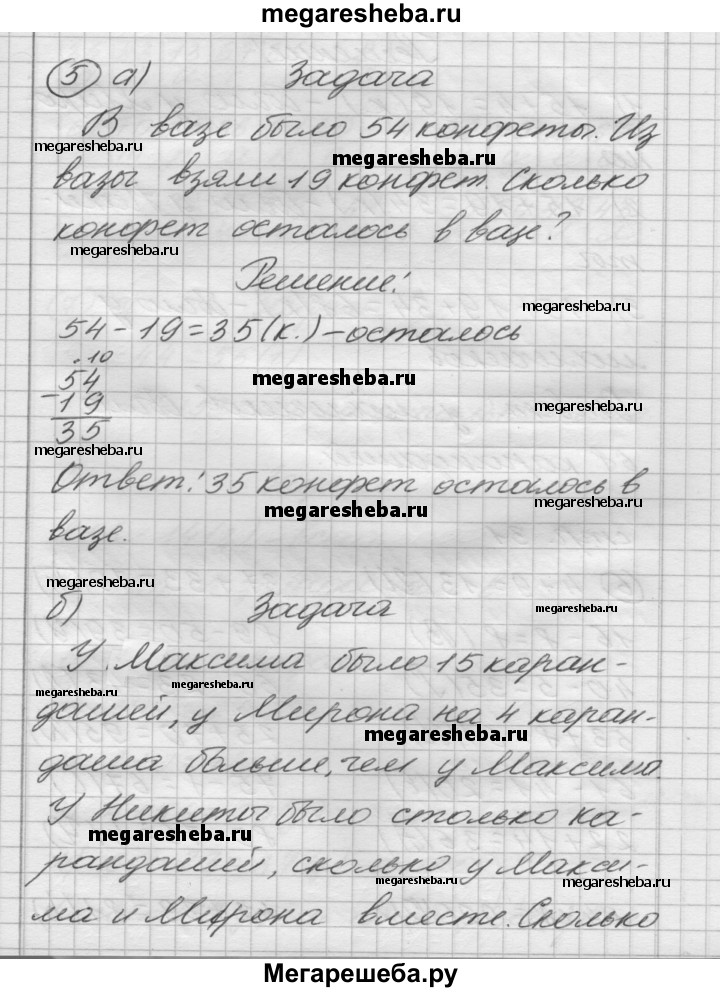 megaresheba.ru
5 а) Задача
В вазе было 54 конфеты. Из
megaresheba.ru
megaresheba.ru
вазы взяли 19 конфет. Сколько
конфет осталось в вазе?
megaresheba.ru
Решение:
megaresheba.ru
54 - 19 = 35 (к.) - осталось
. 10
54
megaresheba.ru
- 19
megaresheba.ru
35
megaresheba.ru
Ответ: 35 конфет осталось в
megaresheba.ru
megaresheba.ru
вазе.
megaresheba.ru
б) Задача
megaresheba.ru
У Максима было 15 каран-
megaresheba.ru
megaresheba.ru
дашей, у Мирона на 4 каран-
megaresheba.ru
даша больше, чем у Максима.
У Никиты было столько ка-
megaresheba.ru
рандашей, сколько у Макси-
megaresheba.ru
megaresheba.ru
ма и Мирона вместе. Сколько
Мегарешеба.ру